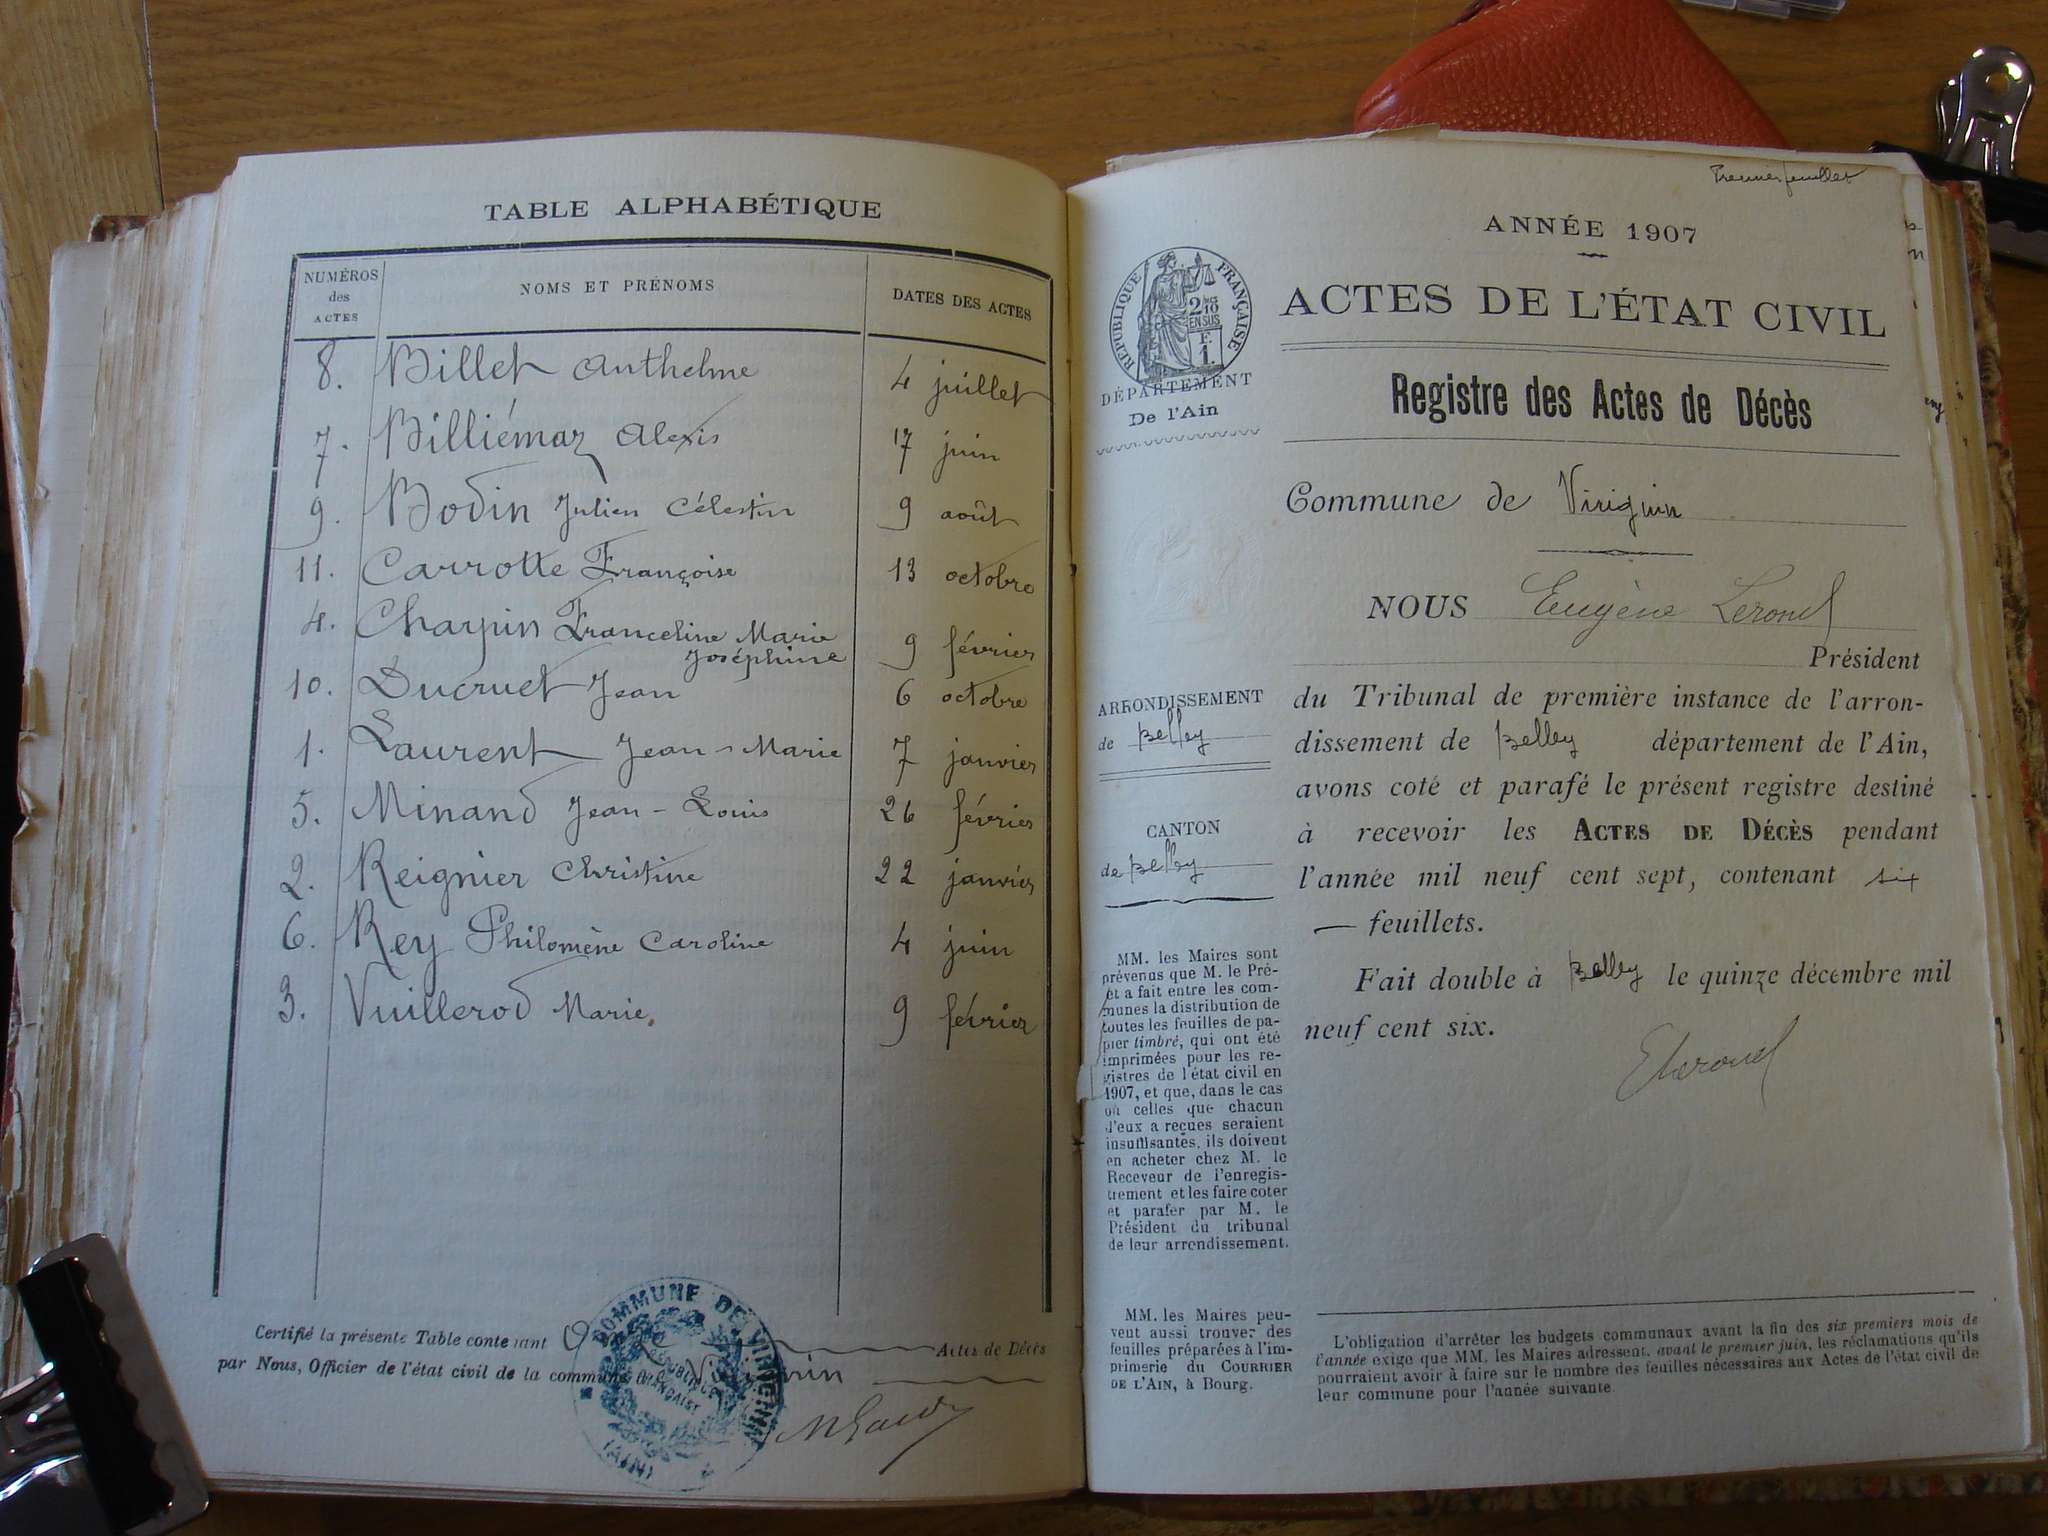 TABLE ALPHABÉTIQUE
NUMÉROS des ACTES NOMS ET PRÉNOMS DATES DES ACTES
8. Billet Anthelme 4 juillet
7. Billiémaz Alexis 17 juin
9. Bodin Julien Célestin 9 août
11. Carrotte Françoise 13 octobre
4. Charpin Franceline Marie
Joséphine 9 février
10. Ducruet Jean 6 octobre
1. Laurent Jean-Marie 7 janvier
5. Minand Jean-Louis 26 février
2. Reignier Christine 22 janvier
6. Rey Philomène Caroline 4 juin
3. Vuillerod Marie. 9 février
Certifié la présente Table contenant Actes de Décès
par Nous, Officier de l'état civil de la commune
COMMUNE DE VIRIGNIN
RÉPUBLIQUE FRANÇAISE
(AIN)
Premier feuillet
ANNÉE 1907
RÉPUBLIQUE FRANÇAISE
2/10 EN SUS
F. 1.
ACTES DE L'ÉTAT CIVIL
DÉPARTEMENT
De l'Ain
Registre des Actes de Décès
Commune de Virignin
NOUS Eugène
Président
du Tribunal de première instance de l'arron-
dissement de Belley département de l'Ain,
avons coté et parafé le présent registre destiné
à recevoir les ACTES DE DÉCÈS pendant
l'année mil neuf cent sept, contenant six
— feuillets.
Fait double à Belley le quinze décembre mil
neuf cent six.
ARRONDISSEMENT
de Belley
CANTON
de Belley
MM. les Maires sont
prévenus que M. le Pré-
et a fait entre les com-
munes la distribution de
toutes les feuilles de pa-
pier timbré, qui ont été
imprimées pour les re-
gistres de l'état civil en
1907, et que, dans le cas
où celles que chacun
d'eux a reçues seraient
insuffisantes, ils doivent
en acheter chez M. le
Receveur de l'enregis-
trement et les faire coter
et parafer par M. le
Président du tribunal
de leur arrondissement.
MM. les Maires peu-
vent aussi trouver des
feuilles préparées à l'im-
primerie du COURRIER
DE L'AIN, à Bourg.
L'obligation d'arrêter les budgets communaux avant la fin des six premiers mois de
l'année exige que MM. les Maires adressent, avant le premier juin, les réclamations qu'ils
pourraient avoir à faire sur le nombre des feuilles nécessaires aux Actes de l'état civil de
leur commune pour l'année suivante.